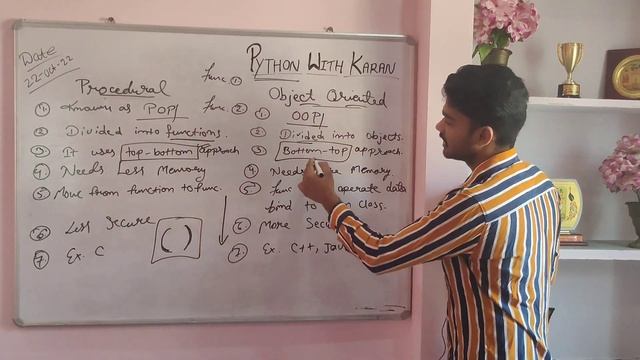 Date
22-Oct-22
PYTHON WITH KARAN
Procedural
① Known as POP/
② Divided into functions.
③ It uses top-bottom approach
④ Needs Less Memory
⑤ Move from function to func.
⑥ Less Secure
⑦ Ex. C
( )
func ①
func ②
Object Oriented
① OOP/
② Divided into objects.
③ Bottom-top approach.
④ Needs Memory.
⑤ func operate data
bind to class.
⑥ More Secure
⑦ Ex. C++, Java